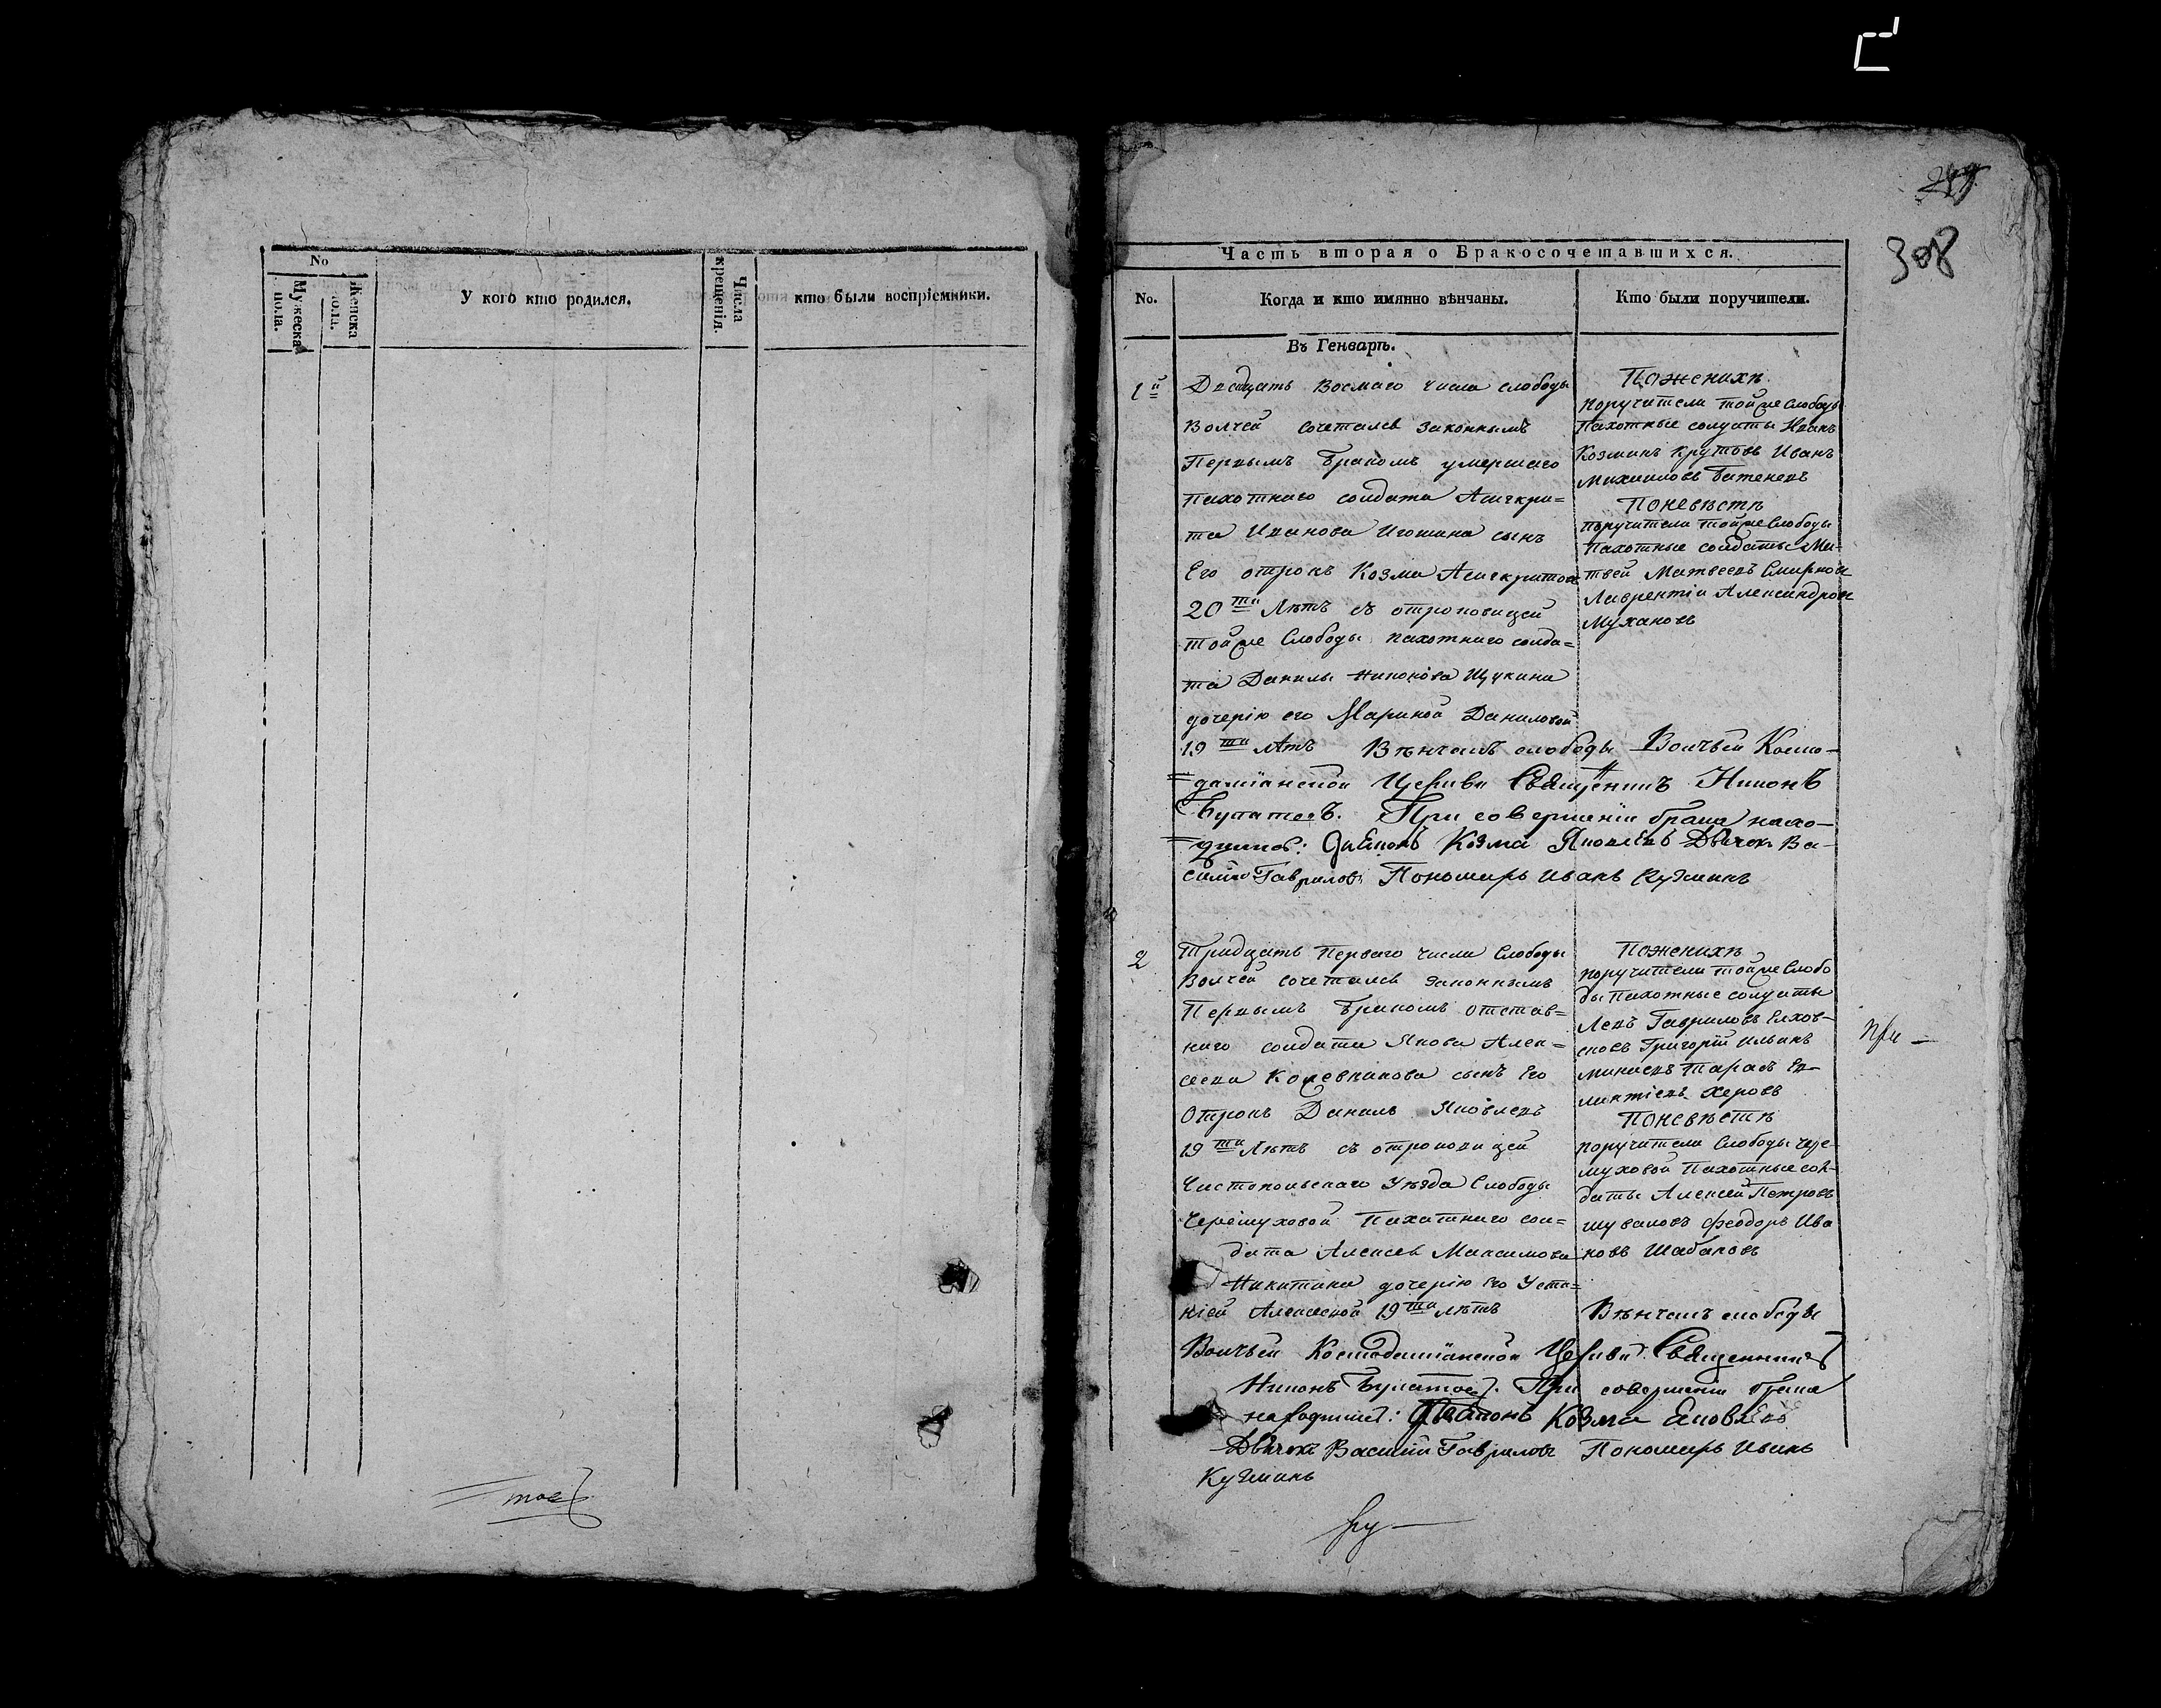 No
Мужеска пола.
Женска пола.
У кого кто родился.
Числа крещенія.
кто были воспріемники.
299
308
Часть вторая о Бракосочетавшихся.
No.
Когда и кто имянно вѣнчаны.
Кто были поручители.
Въ Генварѣ.
1й
Двацать восмаго числа слободы
Волчей сочетался законнымъ
Первымъ бракомъ умершаго
пахотнаго солдата Асигкри=
та Иванова Игошина сынъ
Его отрокъ Козма Асигкритов
20ти Лѣтъ съ отроковицей
тойже Слободы пахотнаго солда=
та Данилы Никонова Щукина
дочерію его Мариной Даниловой
19ти лѣтъ Вѣнчалъ слободы Волчьей Космо-
=даміанской Церкви Священникъ Никонъ
Булатовъ. При совершеніи брака нахо-
=дились: Діаконъ Козма Яковлевъ Дьячокъ Ва-
силій Гавриловъ Пономарь Иванъ Кузминъ
Пожених
поручители тойже Слободы
Пахотные солдаты Иванъ
Козминъ Крутовъ Иванъ
Михаиловъ Батеневъ
Поневѣстѣ
поручители тойже Слободы
Пахотные солдаты Ма-
твей Матвеевъ Смирнов
Лаврентіи Александров
Мухановъ
2
Тридцать Перваго числа Слободы
Волчей сочетался законнымъ
Первымъ бракомъ отстав=
наго солдата Якова Алек=
сеева Кожевникова сынъ Его
Отрокъ Данилъ Яковлевъ
19ти Лѣтъ съ отроковицей
Чистопольскаго Уѣзда Слободы
Черемуховой Пахатнаго сол=
дата Алексея Максимова
Никитина дочерію Его Усти=
ніей Алексевой 19ти лѣтъ
Вѣнчалъ слободы
Волчьей Космодаміанской Церкви Священникъ
Никонъ Булатовъ. При совершеніи брака
находились: Діаконъ Козма Яковлевъ
Дьячокъ Василій Гавриловъ Пономарь Иванъ
Кузминъ
Пожених
поручители тойже Слобо
ды Пахотные солдаты
Левъ Гавриловъ Елхов-
Григорій Ильинъ
Тарасъ Ев-
Херовъ
Поневѣстѣ
поручители Слободы Чере-
муховой Пахотные сол-
даты Алексей Петровъ
Шуваловъ Феодоръ Ива
новъ Шабаловъ
при -
тов